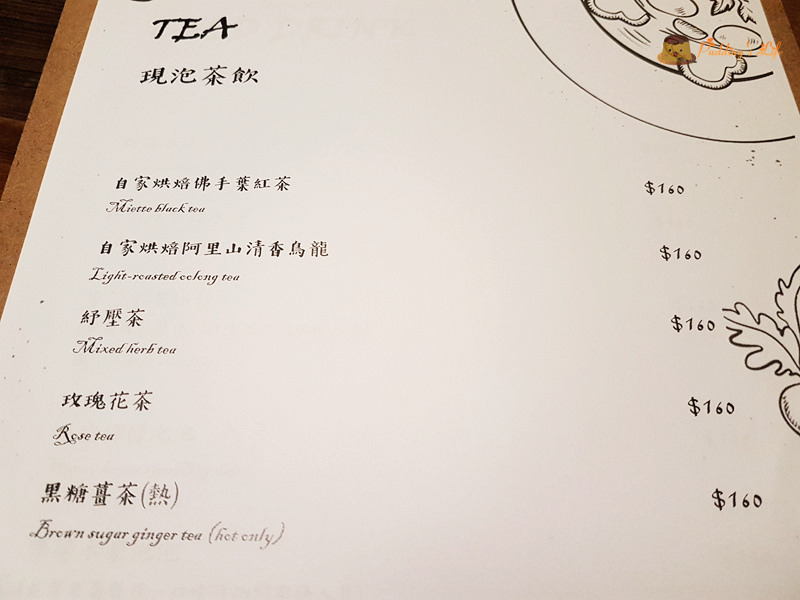 TEA
現泡茶飲
自家烘焙佛手葉紅茶 $160
Miette black tea
自家烘焙阿里山清香烏龍 $160
Light-roasted oolong tea
紓壓茶 $160
Mixed herb tea
玫瑰花茶 $160
Rose tea
黑糖薑茶(熱) $160
Brown sugar ginger tea (hot only)